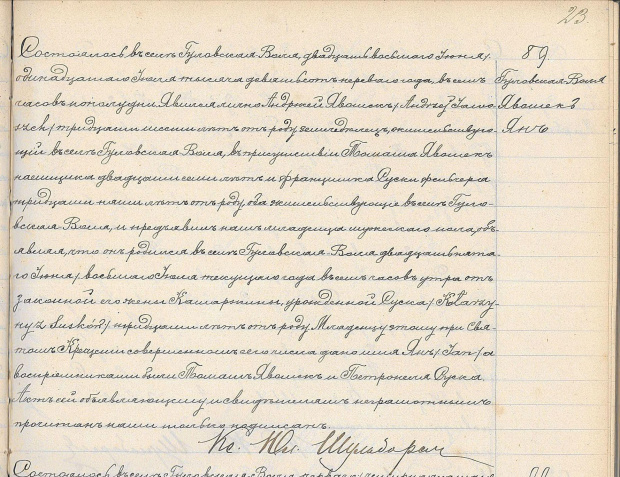 23.
Состоялось въ селѣ Гуловская-Воля, двадцать восьмаго Іюня/
одинадцатаго Іюля тысяча девятьсотъ перваго года, въ семь
часовъ пополудни. Явился лично Андржей Явошекъ /Andrzej Jawo-
szek/ тридцати шести лѣтъ отъ роду земледѣлецъ, жительствую-
щій въ селѣ Гуловская Воля, въ присутствіи Томаша Явошекъ
наемщика двадцати семи лѣтъ и Францишка Суски фельчера
тридцати лѣтъ отъ роду, оба жительствующіе въ селѣ Гуло-
вская Воля, и предъявилъ намъ младенца мужескаго пола, объ-
являя, что онъ родился въ селѣ Гуловская Воля двадцать пята-
го Іюня/ восьмаго Іюля текущаго года въ семь часовъ утра отъ
законной его жены Катаржины, урожденной Суска /Katarzy-
ny z Susków/ тридцати лѣтъ отъ роду. Младенцу этому при Свя-
томъ Крещеніи совершенномъ сего числа дано имя Янъ /Jan/ а
воспріемниками были Томашъ Явошекъ и Петронеля Суска.
Актъ сей объявляющему и свидѣтелямъ неграмотнымъ
прочитанъ нами только подписанъ.
Кс. Юл.
89.
Гуловская-Воля
Явошекъ
Янъ
Состоялось въ селѣ Гуловская-Воля
90